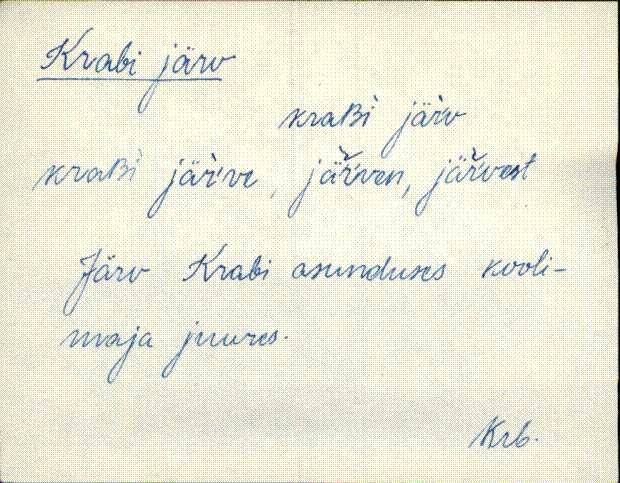 Krabi järv
kraʙì jäŕ̀v
kraʙì jäŕ̀ve, jäř́ven, jäř́vest
Järv Krabi asunduses kooli-
maja juures.
Krb.